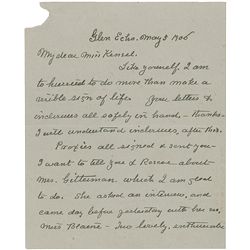 Glen Echo, May 3 1906
My dear Miss Kensel.
Like yourself, I am
to hurried to do more than make a
visible sign of life. Your letters &
inclosures all safely in hand — thanks.
I will understand inclosures, after this.
Proxies all signed & sent you —
I want to tell you & Roscoe about
Mrs. Gitterman which I am glad
to do. She asked an interview, and
came day before yesterday with her
Miss Blaine — two lovely, enthusiastic